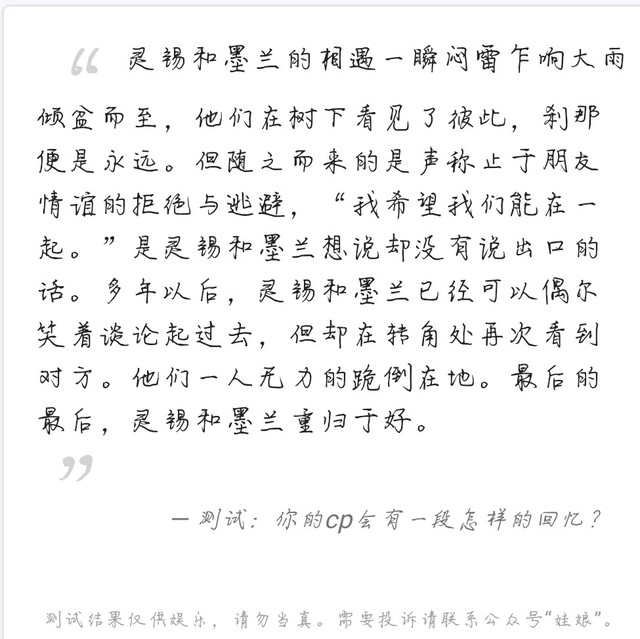 “ 灵锡和墨兰的相遇一瞬闷雷乍响大雨
倾盆而至，他们在树下看见了彼此，刹那
便是永远。但随之而来的是声称止于朋友
情谊的拒绝与逃避，“我希望我们能在一
起。”是灵锡和墨兰想说却没有说出口的
话。多年以后，灵锡和墨兰已经可以偶尔
笑着谈论起过去，但却在转角处再次看到
对方。他们一人无力的跪倒在地。最后的
最后，灵锡和墨兰重归于好。
”
— 测试：你的cp会有一段怎样的回忆？
测试结果仅供娱乐，请勿当真。需要投诉请联系公众号“娃娘”。